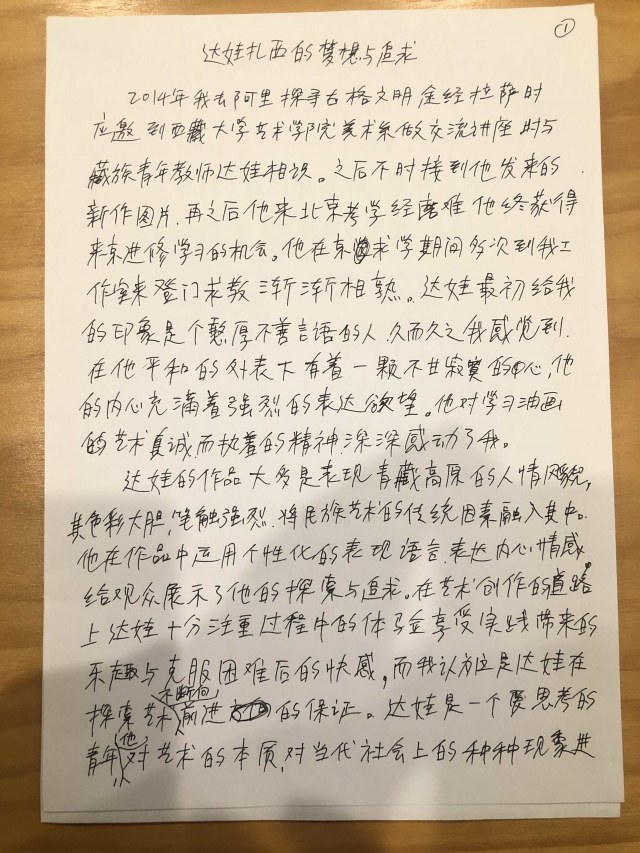 ①
达娃扎西的梦想与追求
2014年我去阿里探寻古格文明途经拉萨时
应邀到西藏大学艺术学院美术系做交流讲座时与
藏族青年教师达娃相识。之后不时接到他发来的
新作图片,再之后他来北京考学经磨难他终获得
来京进修学习的机会。他在京求学期间多次到我工
作室来登门求教渐渐相熟。达娃最初给我
的印象是个憨厚不善言语的人,久而久之我感觉到,
在他平和的外表下有着一颗不甘寂寞的心,他
的内心充满着强烈的表达欲望。他对学习油画
的艺术真诚而执着的精神,深深感动了我。
达娃的作品大多是表现青藏高原的人情风貌,
其色彩大胆,笔触强烈,将民族艺术的传统因素融入其中。
他在作品中运用个性化的表现语言,表达内心情感
给观众展示了他的探索与追求。在艺术创作的道路
上达娃十分注重过程中的体验享受实践带来的
乐趣与克服困难后的快感,而我认为这是达娃在
探索艺术不断向前进的保证。达娃是一个爱思考的
青年,他对艺术的本质,对当代社会上的种种现象进